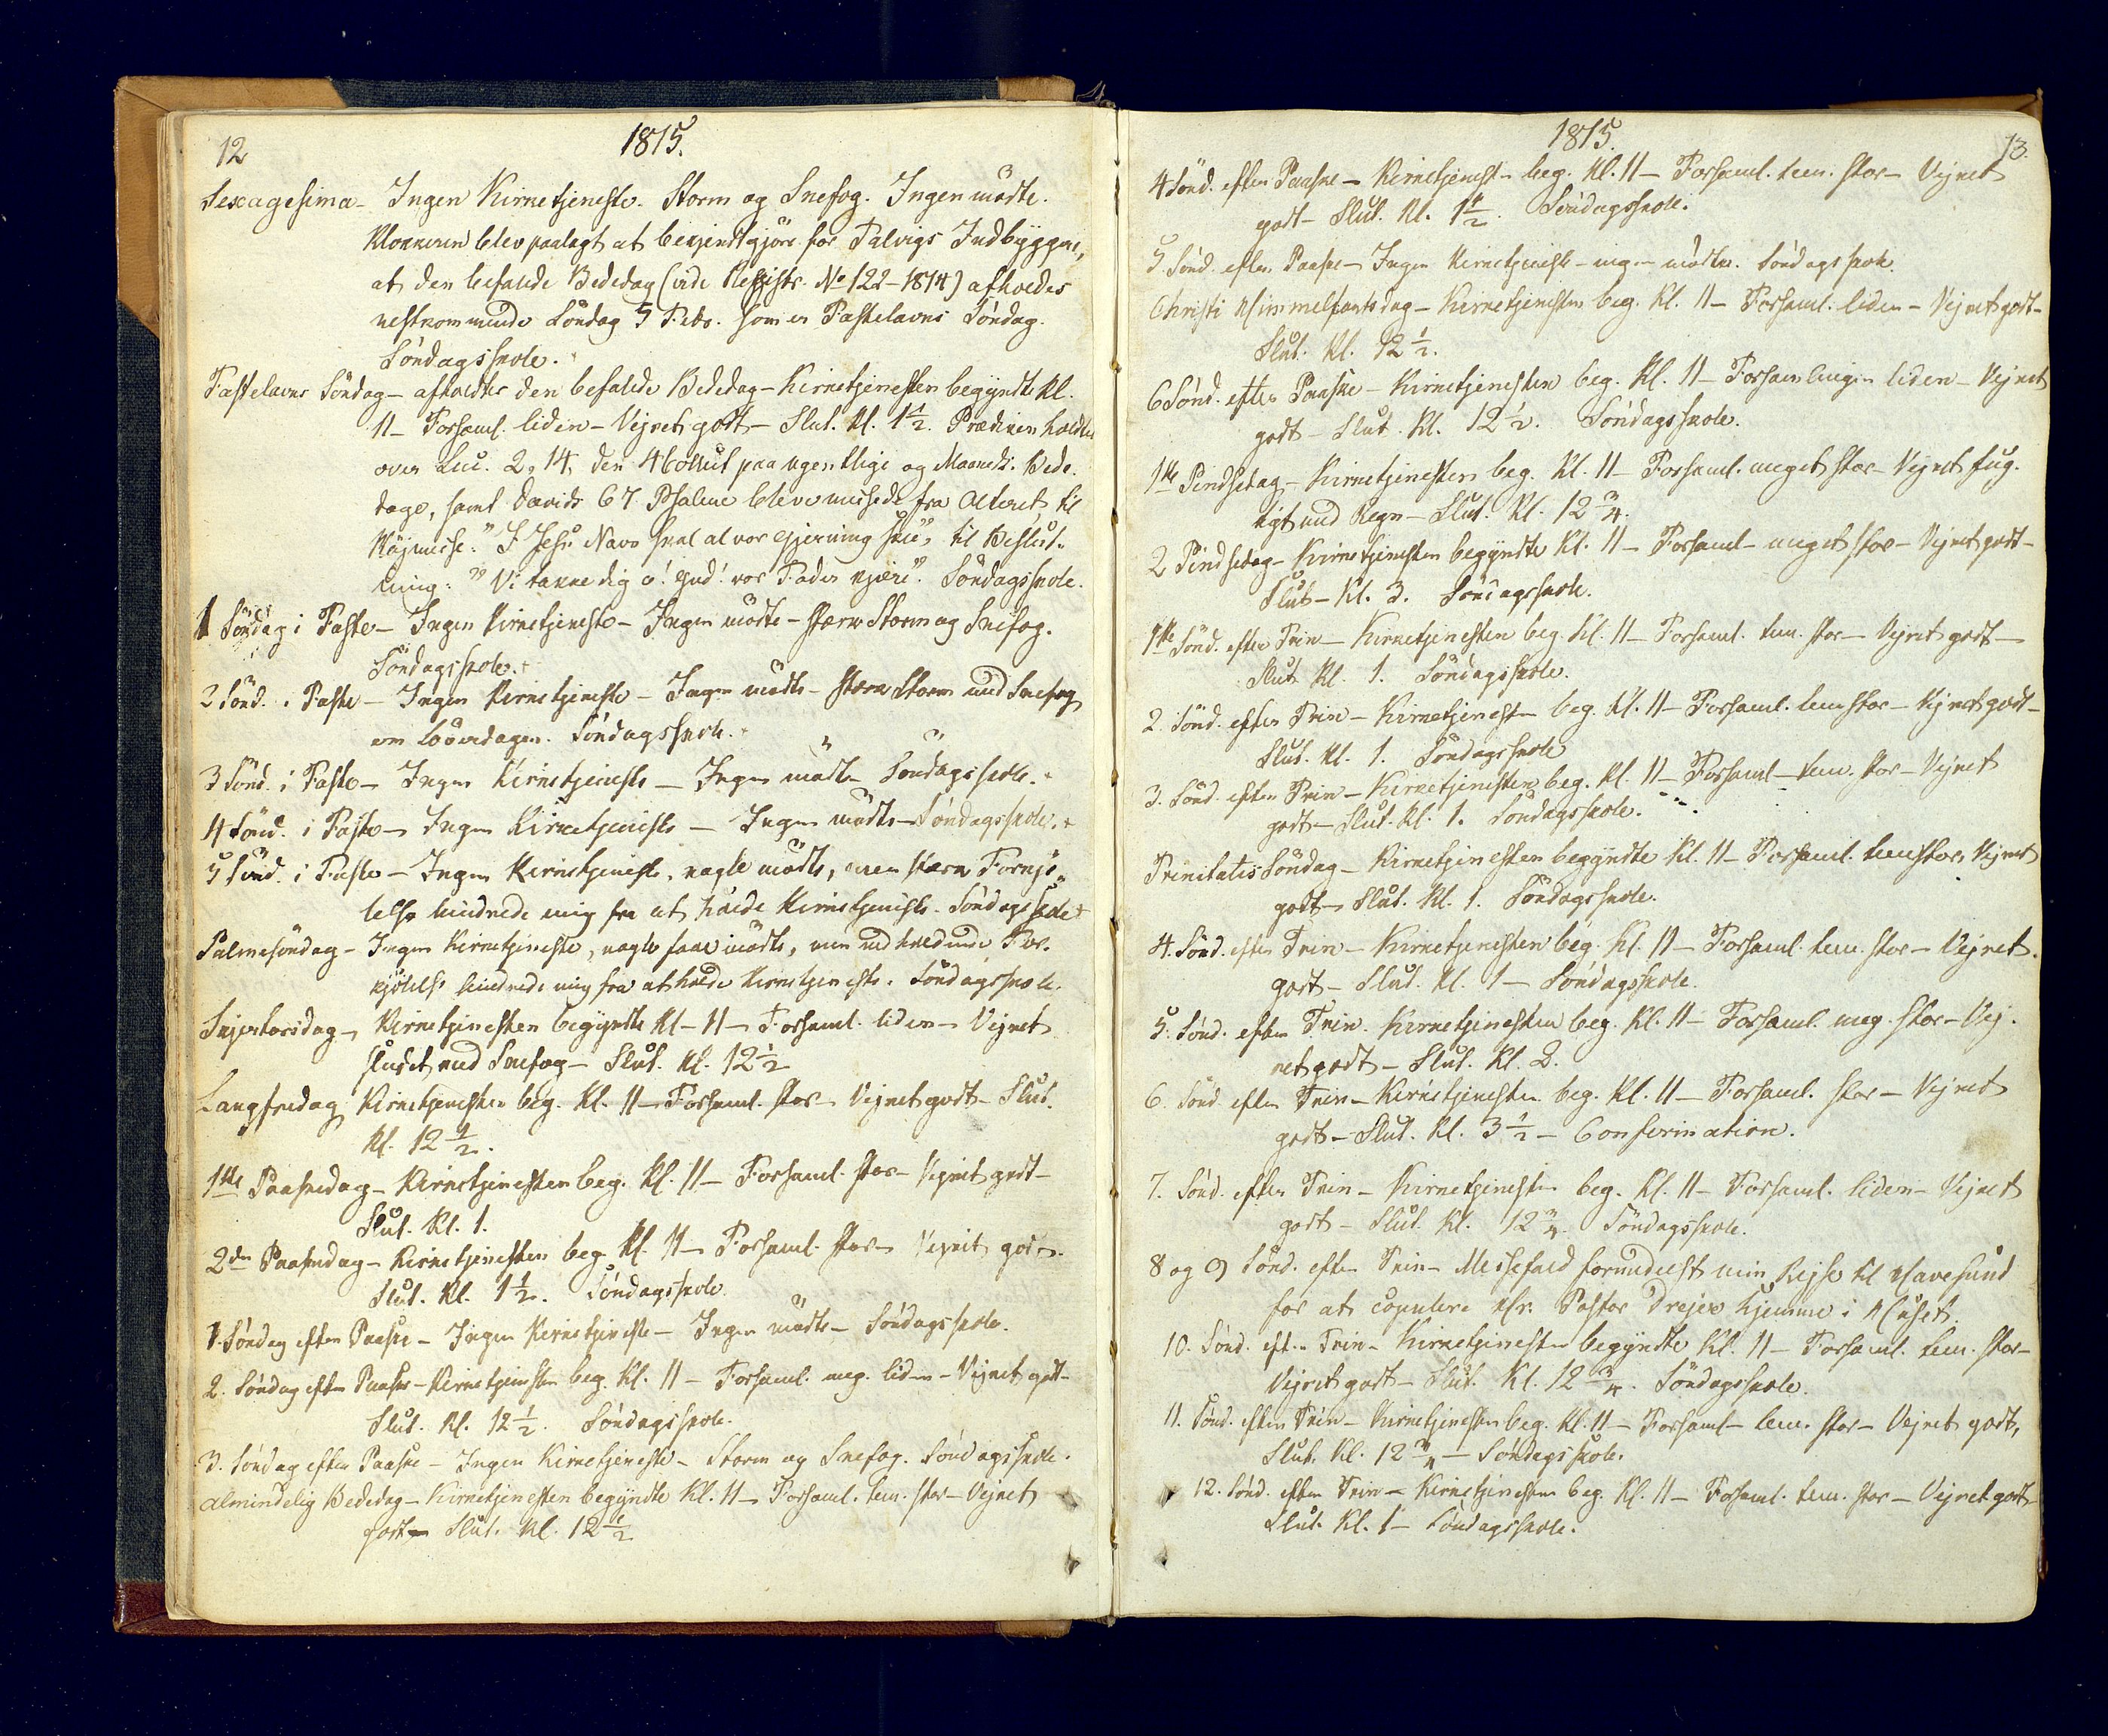 12
1815.
Sexagesima - Ingen Kirketjeneste. Storm og Snefog. Ingen mödte.
Klokkeren blev paalagt at bekjendtgjöre for Talvigs Indbyggere,
at den befalede Bededag (vide Registr. No 122 - 1814) afholdes
nestkommende Söndag 5 Febr. som er Fastelavns Söndag.
Söndagsskole.
Fastelavns Söndag - afholdtes den befalede Bededag - Kirketjenesten begyndte Kl.
11 - Forsaml. liden - Vejret godt - Slut. Kl. 1 1/2. Prædiken holdtes
over Luc. 2, 14, den 4 Collect paa egentlige og Maaneds. Bede-
dage, samt Davids 67 Psalme bleve messede fra Alteret, til
Höjmesse: "I Jesu Navn skal al vor Gjerning skee", til Beslut-
ning: "Vi takke dig o! Gud! vor Fader kjære". Söndagsskole.
1 Söndag i Faste - Ingen Kirketjeneste - Ingen mödte - stærk Storm og Snefog.
Söndagsskole.
2 Sönd. i Faste - Ingen Kirketjeneste - Ingen mödte - stærk Storm med Snefog
om Löverdagen. Söndagsskole.
3 Sönd. i Faste - Ingen Kirketjeneste - Ingen mödte Söndagsskole.
4 Sönd. i Faste - Ingen Kirketjeneste - Ingen mödte - Söndagsskole.
5 Sönd. i Faste - Ingen Kirketjeneste, nogle mödte, men stærk Forkjö-
lelse hindrede mig fra at holde Kirketjeneste. Söndagsskole
Palmesöndag - Ingen Kirketjeneste, nogle faae mödte, men vedholdende For-
kjölelse hindrede mig fra at holde Kirketjeneste. Söndagsskole.
Skjertorsdag - Kirketjenesten begyndte Kl - 11 - Forsaml. liden - Vejret
sludet med Snefog - Slut. Kl. 12 1/2
Langfredag Kirketjenesten beg. Kl. 11 - Forsaml. stor - Vejret godt - Slut.
Kl. 12 1/2.
1ste Paaskedag - Kirketjenesten beg. Kl. 11 - Forsaml. stor - Vejret godt -
Slut. Kl. 1.
2den Paaskedag - Kirketjenesten beg. Kl. 11 - Forsaml. stor - Vejret godt.
Slut. Kl. 1 1/2. Söndagsskole.
1. Söndag efter Paaske - Ingen Kirketjeneste - Ingen mödte - Söndagsskole.
2. Söndag efter Paaske - Kirketjenesten beg. Kl. 11 - Forsaml. meg. liden - Vejret godt -
Slut. Kl. 12 1/2. Söndagsskole.
3. Söndag efter Paaske - Ingen Kirketjeneste - Storm og Snefog. Söndagsskole.
Almindelig Bededag - Kirketjenesten begyndte Kl. 11 - Forsaml. tem. stor - Vejret
godt - Slut. Kl. 12 1/2
1815.
13.
4 Sönd. efter Paaske - Kirketjenesten beg. Kl. 11 - Forsaml. tem. stor - Vejret
godt - Slut. Kl. 1 1/2. Söndagsskole.
5. Sönd. efter Paaske - Ingen Kirketjeneste - ingen mödte. Söndagsskole.
Christi Himmelfartsdag - Kirketjenesten beg. Kl. 11 - Forsaml. liden - Vejret godt -
Slut. Kl. 12 1/2.
6 Sönd. efter Paaske - Kirketjenesten beg. Kl. 11 - Forsamlingen liden - Vejret
godt - Slut. Kl. 12 1/2. Söndagsskole.
1ste Pindsedag - Kirketjenesten beg. Kl. 11 - Forsaml. meget stor - Vejret fug-
tigt med Regn - Slut. Kl. 12 3/4.
2 Pindsedag - Kirketjenesten begyndte Kl. 11 - Forsaml - meget stor - Vejret godt -
Slut - Kl. 3. Söndagsskole.
1ste Sönd. efter Trin - Kirketjenesten beg. Kl. 11 - Forsaml. tem. stor - Vejret godt -
Slut. Kl. 1. Söndagsskole.
2. Sönd. efter Trin - Kirketjenesten beg. Kl. 11 - Forsaml. tem stor - Vejret godt -
Slut. Kl. 1. Söndagsskole
3. Sönd. efter Trin - Kirketjenesten beg. Kl. 11 - Forsaml - tem. stor - Vejret
godt - Slut. Kl. 1. Söndagsskole.
Trinitatis Söndag - Kirketjenesten begyndte Kl. 11 - Forsaml. tem stor, Vejret
godt - Slut. Kl. 1. Söndagsskole.
4. Sönd. efter Trin - Kirketjenesten beg. Kl. 11 - Forsaml. tem. stor - Vejret.
godt - Slut. Kl. 1 - Söndagsskole.
5. Sönd. efter Trin. Kirketjenesten beg. Kl. 11 - Forsaml. meg. stor - Vej-
ret godt - Slut. Kl. 2.
6. Sönd efter Trin - Kirketjenesten beg. Kl. 11 - Forsaml. stor - Vejret
godt - Slut. Kl. 3 1/2 - Confirmation.
7. Sönd. efter Trin - Kirketjenesten beg. Kl. 11 - Forsaml. liden - Vejret
godt - Slut. Kl. 12 3/4. Söndagsskole.
8 og 9 Sönd. efter Trin - Messefald formedelst min Rejse til Havesund
for at copulere Hr. Pastor Drejer hjemme i Huset.
10. Sönd. efter Trin - Kirketjenesten begyndte Kl. 11 - Forsaml. tem. stor -
Vejret godt - Slut. Kl. 12 3/4. Söndagsskole.
11. Sönd. efter Trin - Kirketjenesten beg. Kl. 11 - Forsaml - tem. stor - Vejret godt,
Slut. Kl. 12 3/4 - Söndagsskole.
12. Sönd. efter Trin - Kirketjenesten beg. Kl. 11 - Forsaml. tem. stor - Vejret godt -
Slut. Kl. 1 - Söndagsskole.